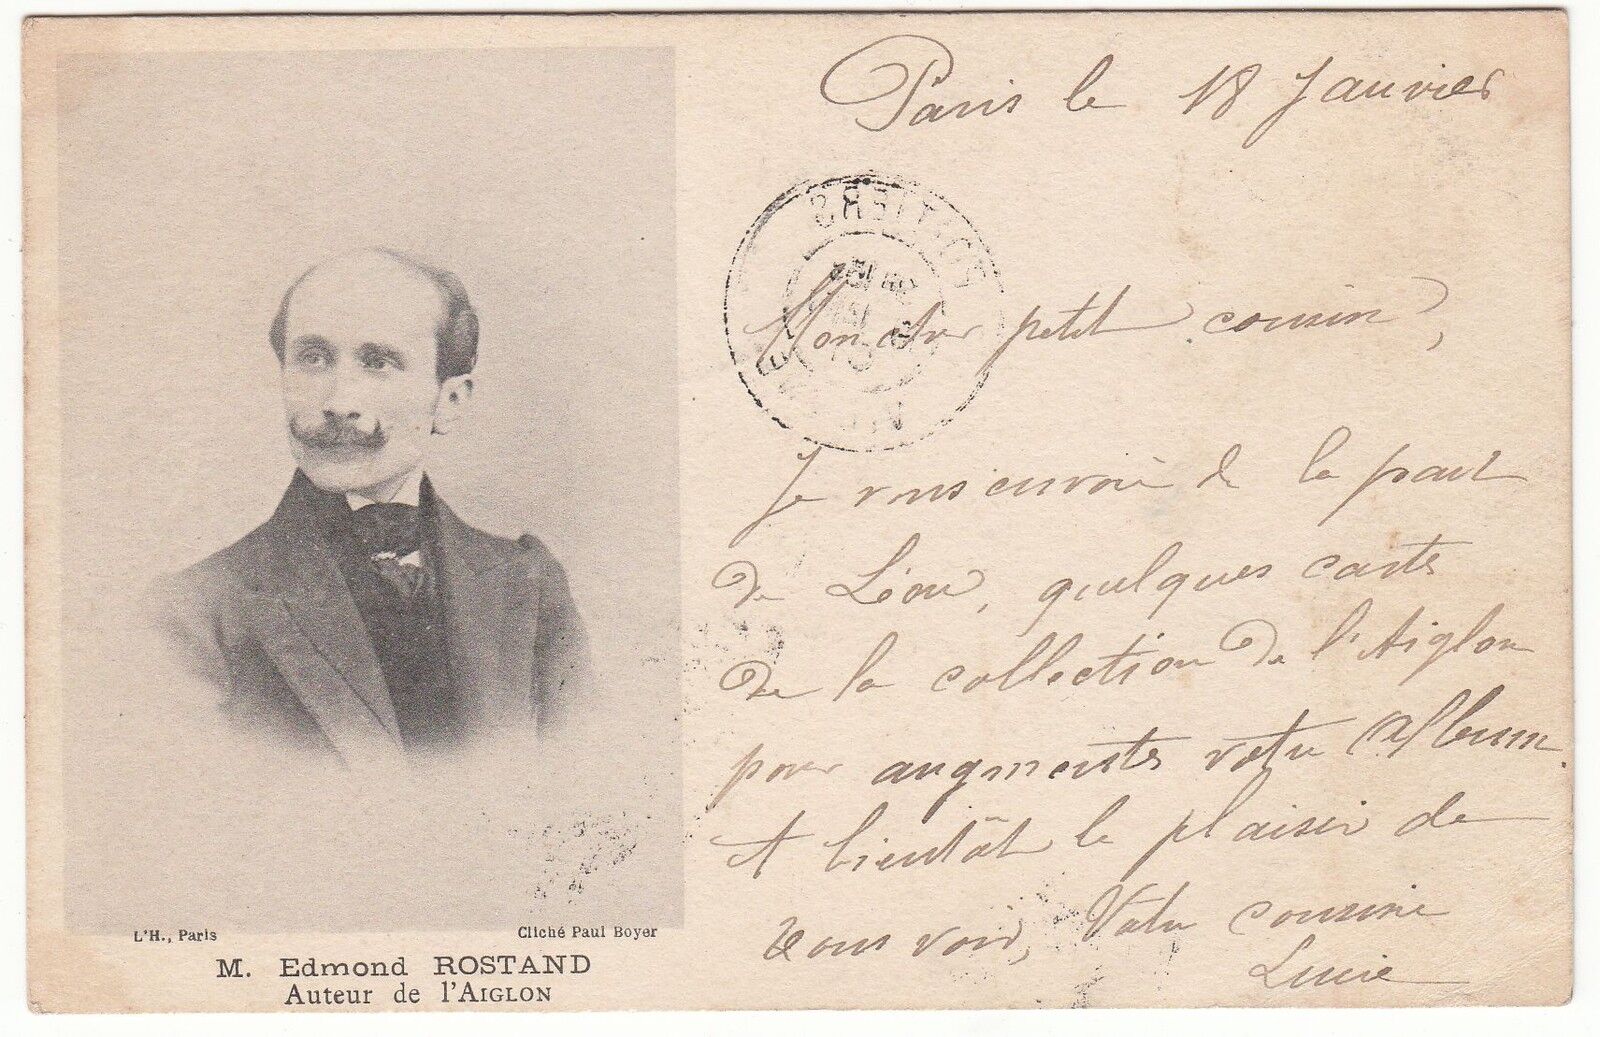 Paris le 18 Janvier
Mon cher petit cousin,
Je vous envoie de la part
de Léon, quelques cartes
de la collection de l'Aiglon
pour augmenter votre album.
A bientôt le plaisir de
vous voir, Votre cousine
Lucie
L'H., Paris
Cliché Paul Boyer
M. Edmond ROSTAND
Auteur de l'AIGLON